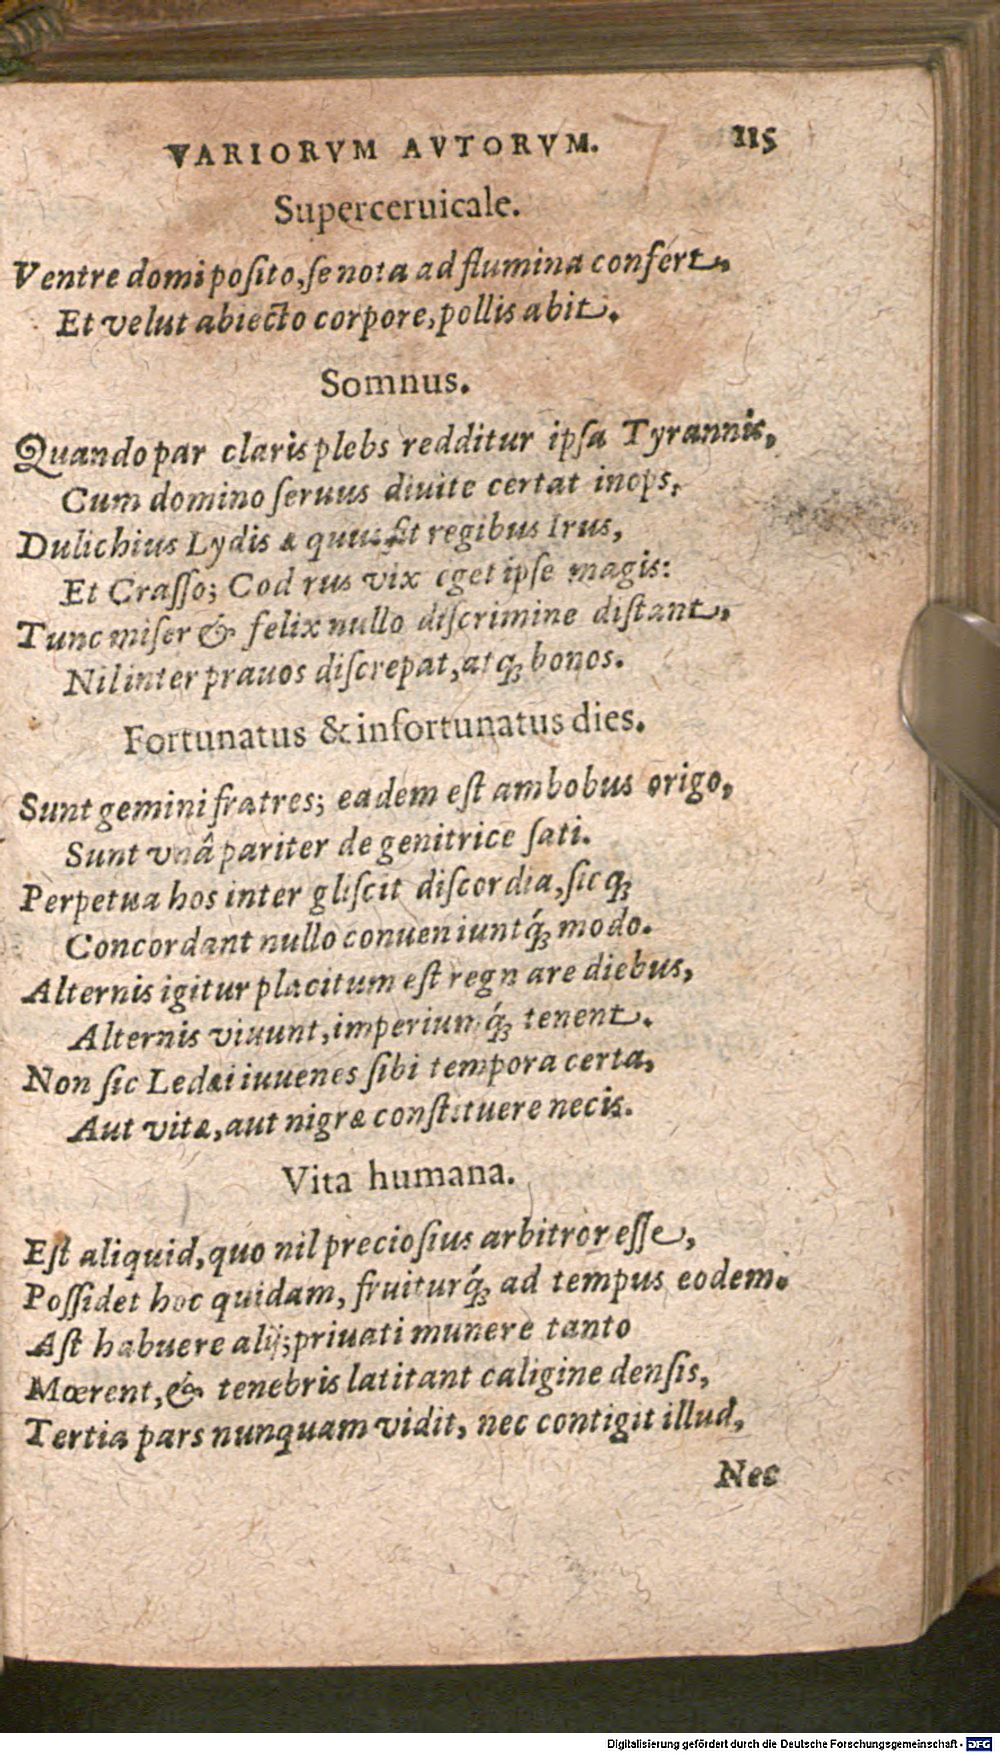 VARIORVM AVTORVM. 115
Superceruicale.
Ventre domi posito, se nota ad flumina confert,
Et velut abiecto corpore, pollis abit.
Somnus.
Quando par claris plebs redditur ipsa Tyrannis,
Cum domino seruus diuite certat inops,
Dulichius Lydis æquus fit regibus Irus,
Et Crasso; Codrus vix eget ipse magis:
Tunc miser & felix nullo discrimine distant,
Nil inter prauos discrepat, atq; bonos.
Fortunatus & infortunatus dies.
Sunt gemini fratres; eadem est ambobus origo,
Sunt vnâ pariter de genitrice sati.
Perpetua hos inter gliscit discordia, sicq;
Concordant nullo conueniuntq́; modo.
Alternis igitur placitum est regnare diebus,
Alternis viuunt, imperiumq́; tenent.
Non sic Ledæi iuuenes sibi tempora certa,
Aut vitæ, aut nigræ constituere necis.
Vita humana.
Est aliquid, quo nil preciosius arbitror esse,
Possidet hoc quidam, fruiturq́; ad tempus eodem.
Ast habuere alij; priuati munere tanto
Mœrent, & tenebris latitant caligine densis,
Tertia pars nunquam vidit, nec contigit illud,
Nec
Digitalisierung gefördert durch die Deutsche Forschungsgemeinschaft - DFG